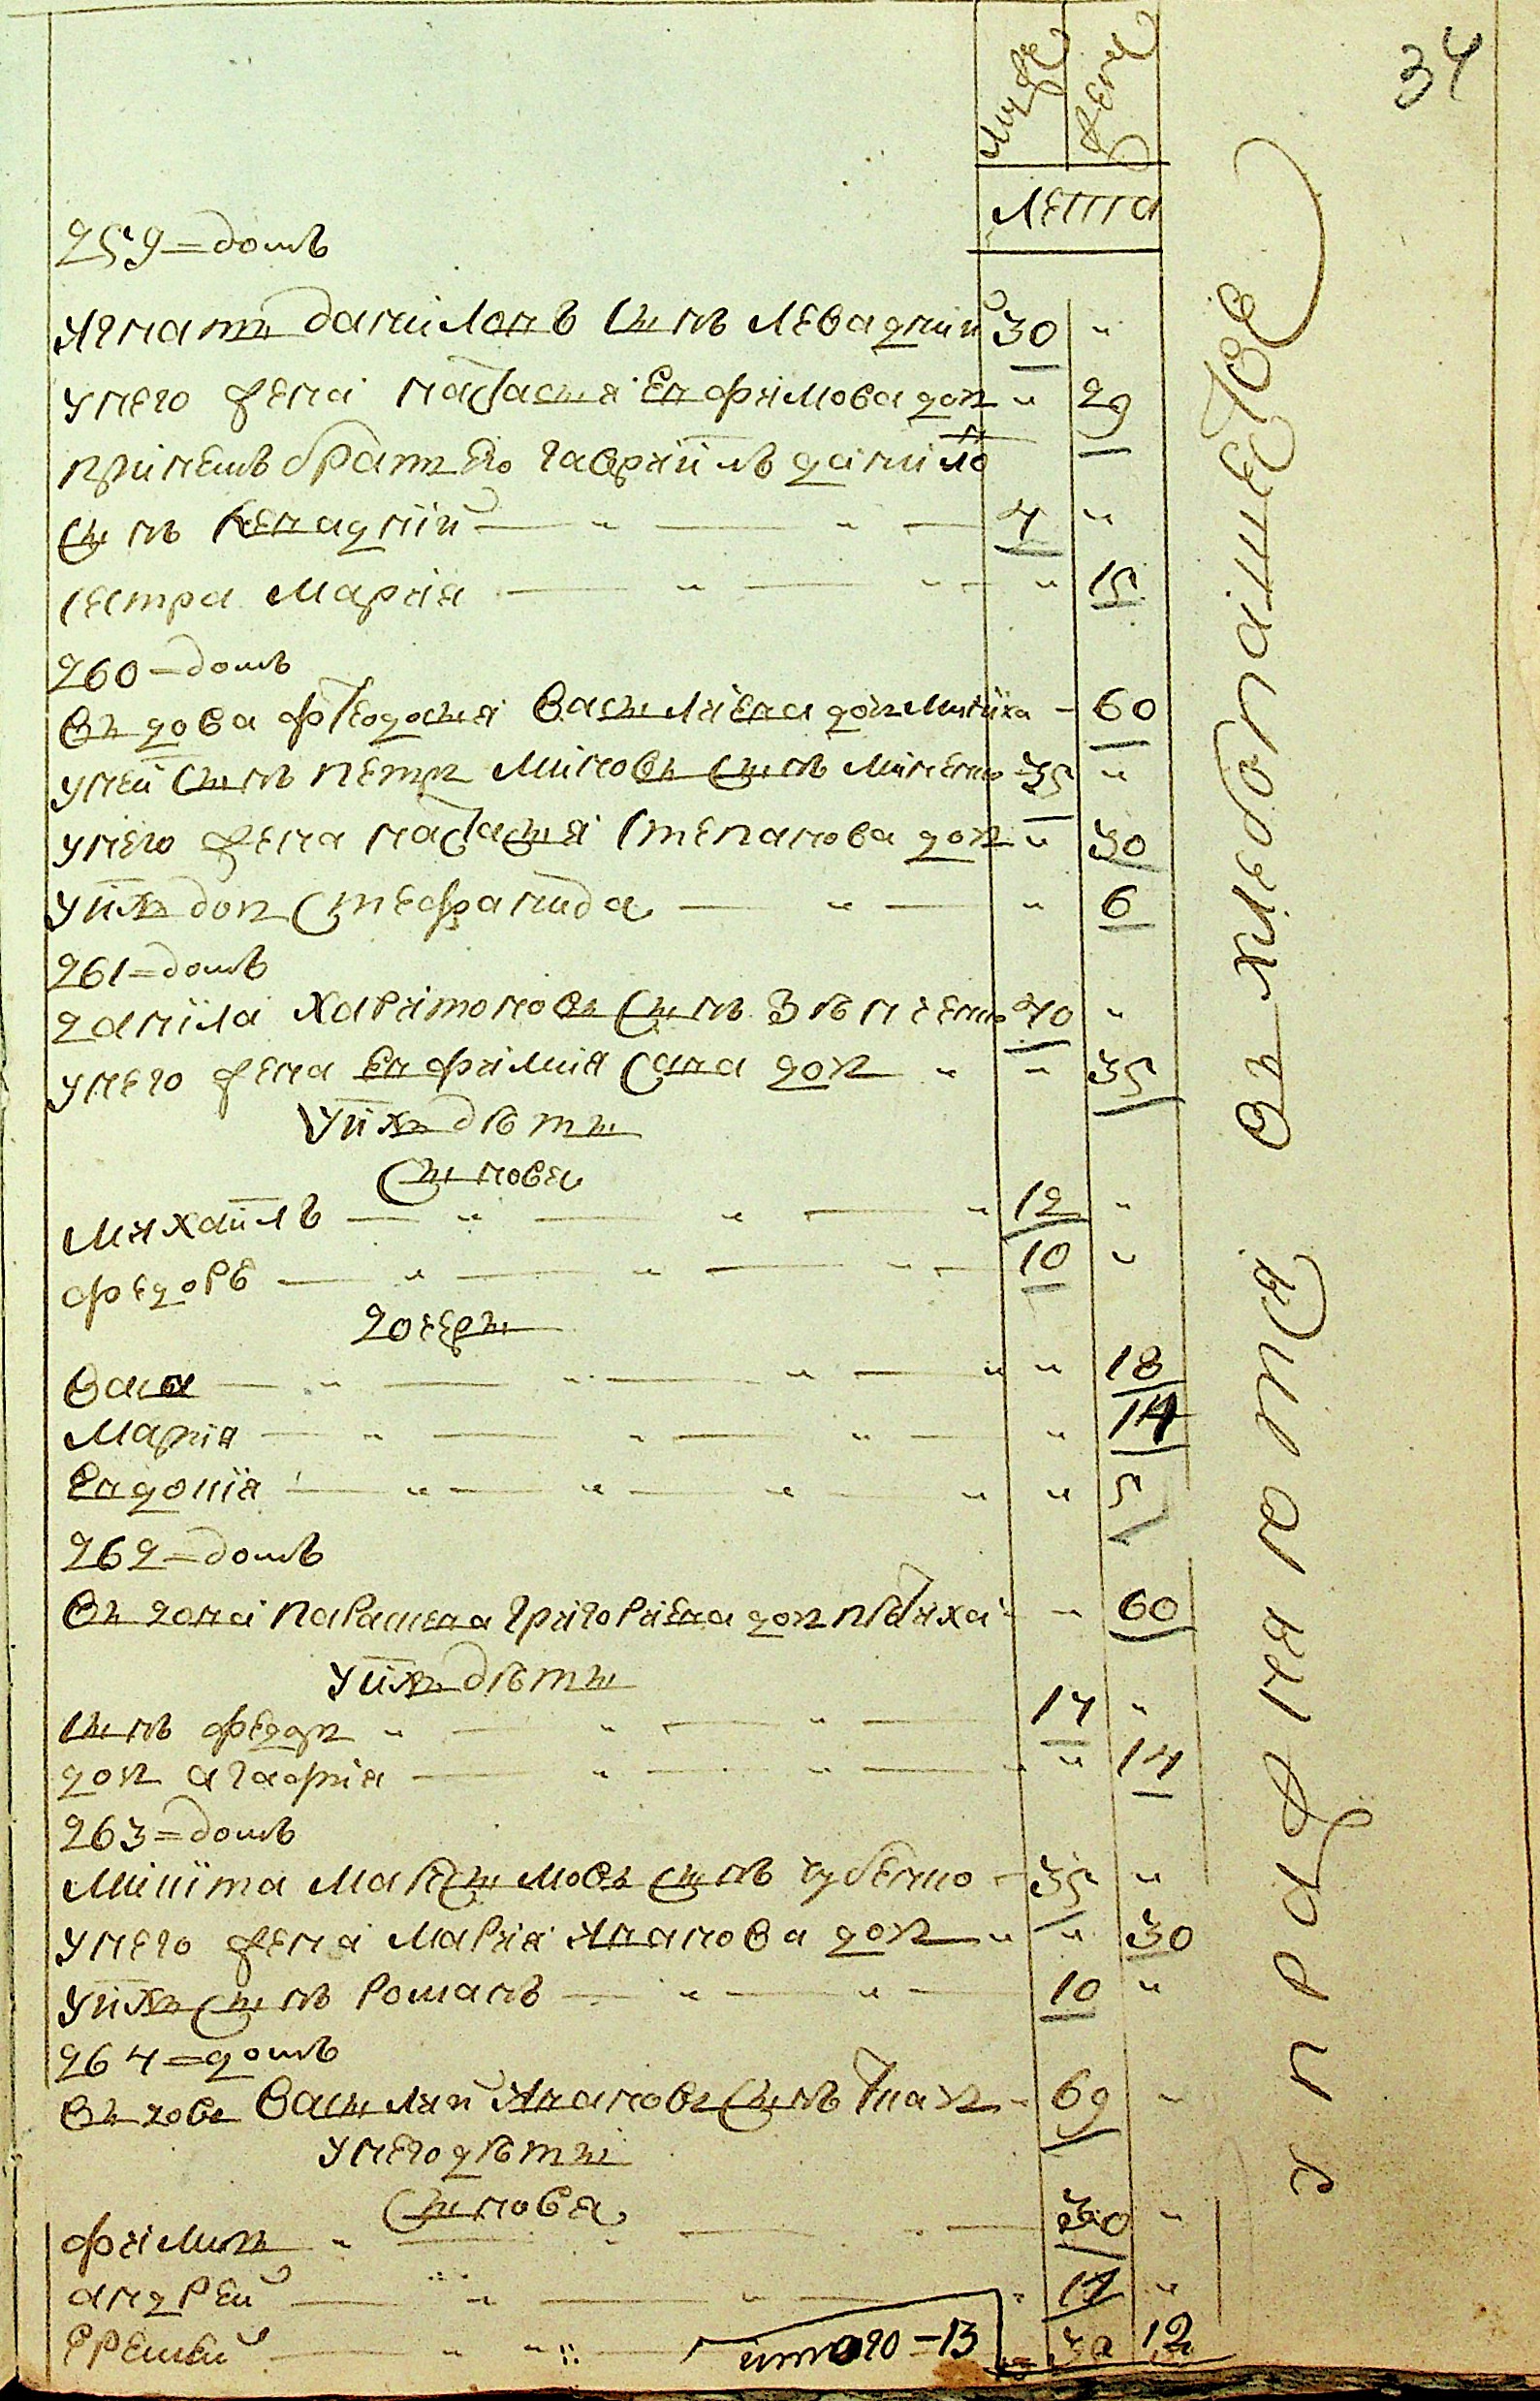 34
муже жене
лета
259 = домъ
Игнатъ Даниловъ сынъ Левадний 30 "
у него жена Настасия Евфимова доч " 29
при немъ братъ его Гавриилъ Данило
сынъ Левадний — " — " — 4 "
сестра Мария — " — " — " 15
260 = домъ
вдова Феодосия Василиева доч Миниха - 60
у ней сынъ Петръ Миновъ сынъ Миненко 35 "
у него жена Настасия Степанова доч " 30
у них доч Стефанида — " — " 6
261 = домъ
Данила Харитоновъ сынъ 40 "
у него жена Евфимия Сава доч " " 35
у них дети
сынова
Михаилъ — " — " — " 12 "
Федоръ — " — " — " — 10 "
дочери
Васа — " — " — " — " " 18
Мария — " — " — " — " 14
Евдокия — " — " — " " " 5
262 = домъ
вдова Параскева Григориева доч - " 60
у них дети
сынъ Федоръ " — " — " — 17 "
доч Агафия — " — " — " 14
263 = домъ
Микита Максимовъ сынъ Чубенко - 35 "
у него жена Мария Иванова доч " " 30
у них сынъ Романъ — " — " — 10 "
264 = домъ
вдовъ Василий Ивановъ сынъ Ткач - 69 "
у него дети
сынова
Филип " — " — 30 "
Андрей — " — " — " 17 "
Еремей — " — " —
итого 20 - 13 12
упражняются въ хлебопашестве